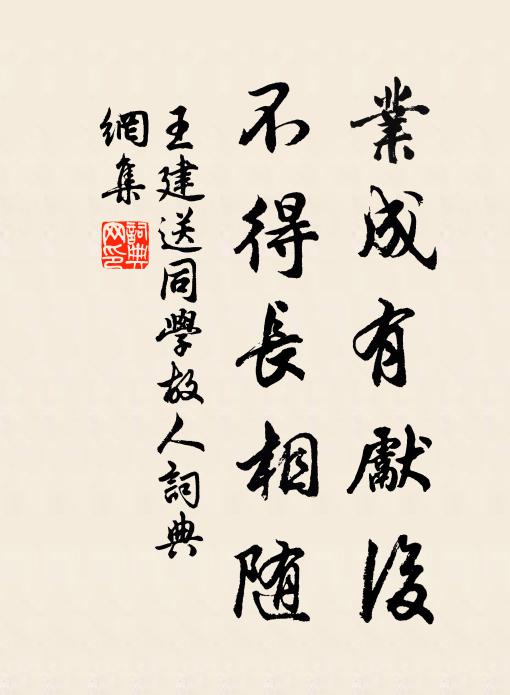 業成有獻後
不得長相随
王建送同學故人詞典
網集
詞典
网印